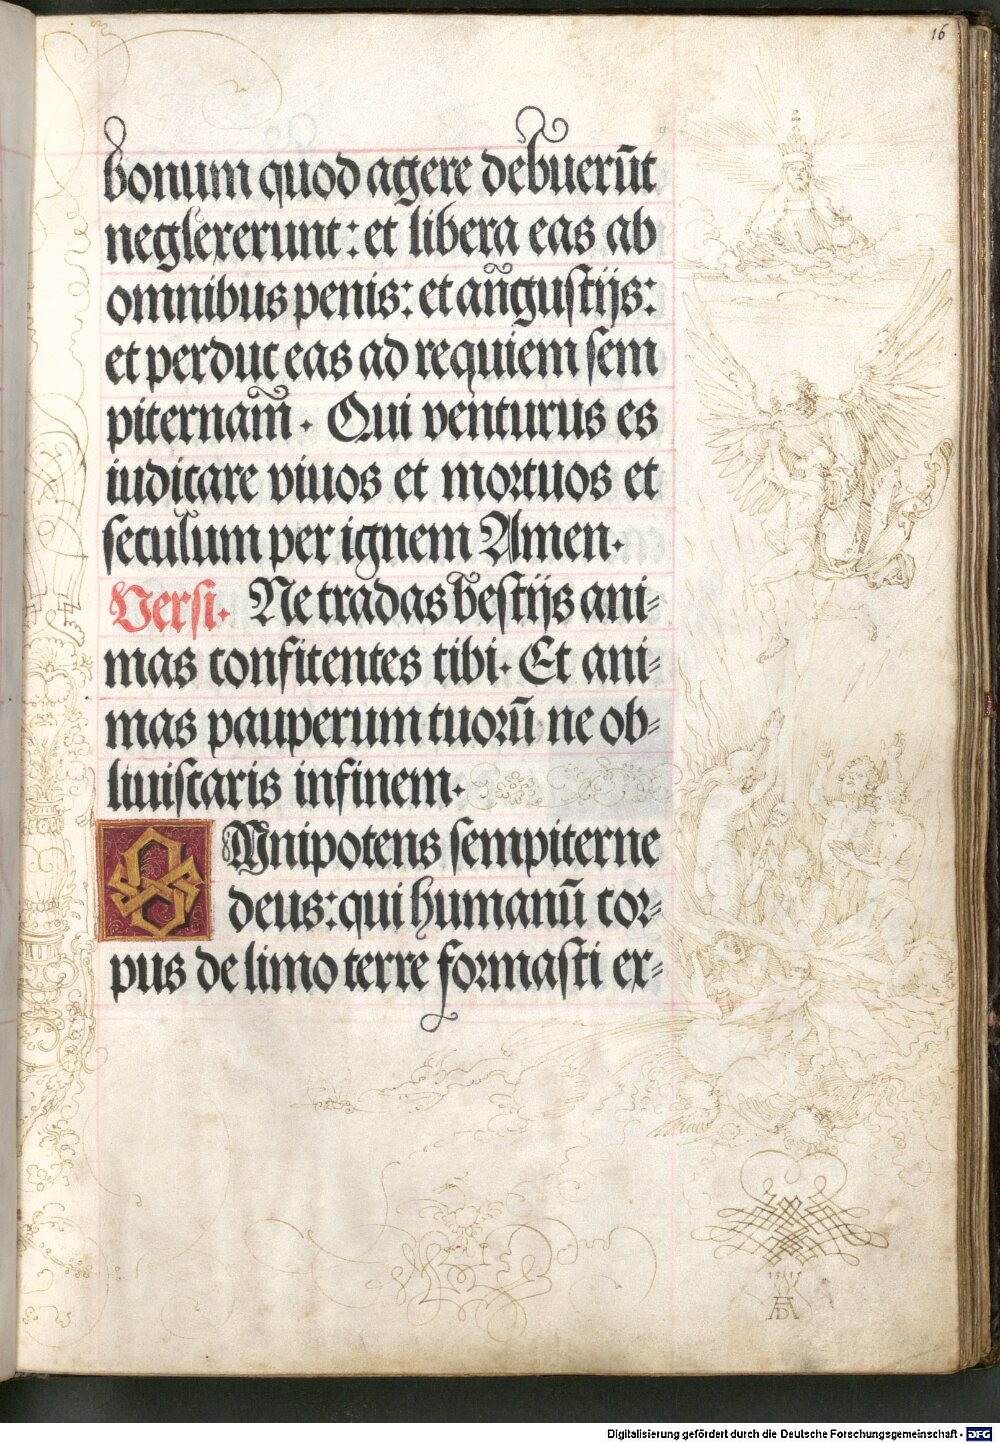 16
bonum quod agere debuerūt
neglexerunt: et libera eas ab
omnibus penis: et angustijs:
et perduc eas ad requiem sem
piternam. Qui venturus es
iudicare viuos et mortuos et
seculum per ignem Amen.
Versi. Ne tradas bestijs ani-
mas confitentes tibi. Et ani-
mas pauperum tuorū ne ob-
liuiscaris infinem.
OMnipotens sempiterne
deus: qui humanū cor-
pus de limo terre formasti ex-
1515
AD
Digitalisierung gefördert durch die Deutsche Forschungsgemeinschaft - DFG